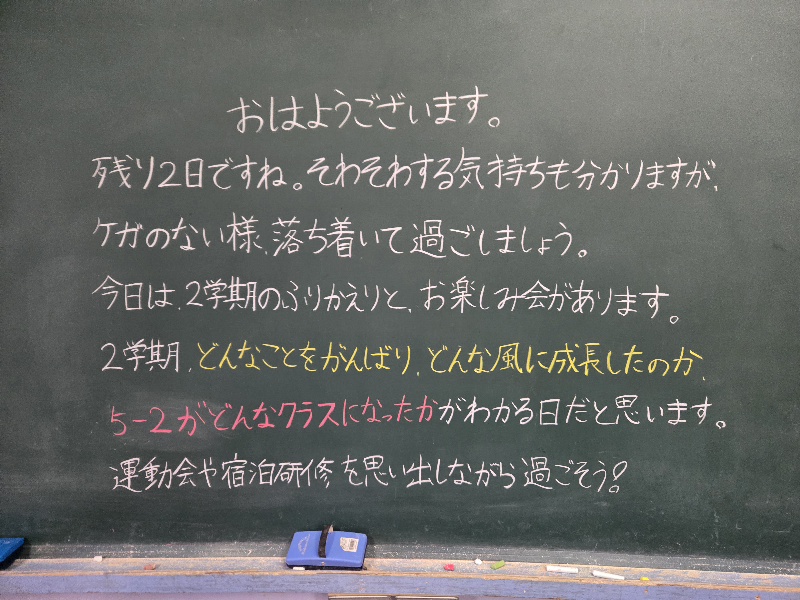 おはようございます。
残り2日ですね。そわそわする気持ちも分かりますが、
ケガのない様、落ち着いて過ごしましょう。
今日は、2学期のふりかえりと、お楽しみ会があります。
2学期、どんなことをがんばり、どんな風に成長したのか、
5-2がどんなクラスになったかがわかる日だと思います。
運動会や宿泊研修を思い出しながら過ごそう!